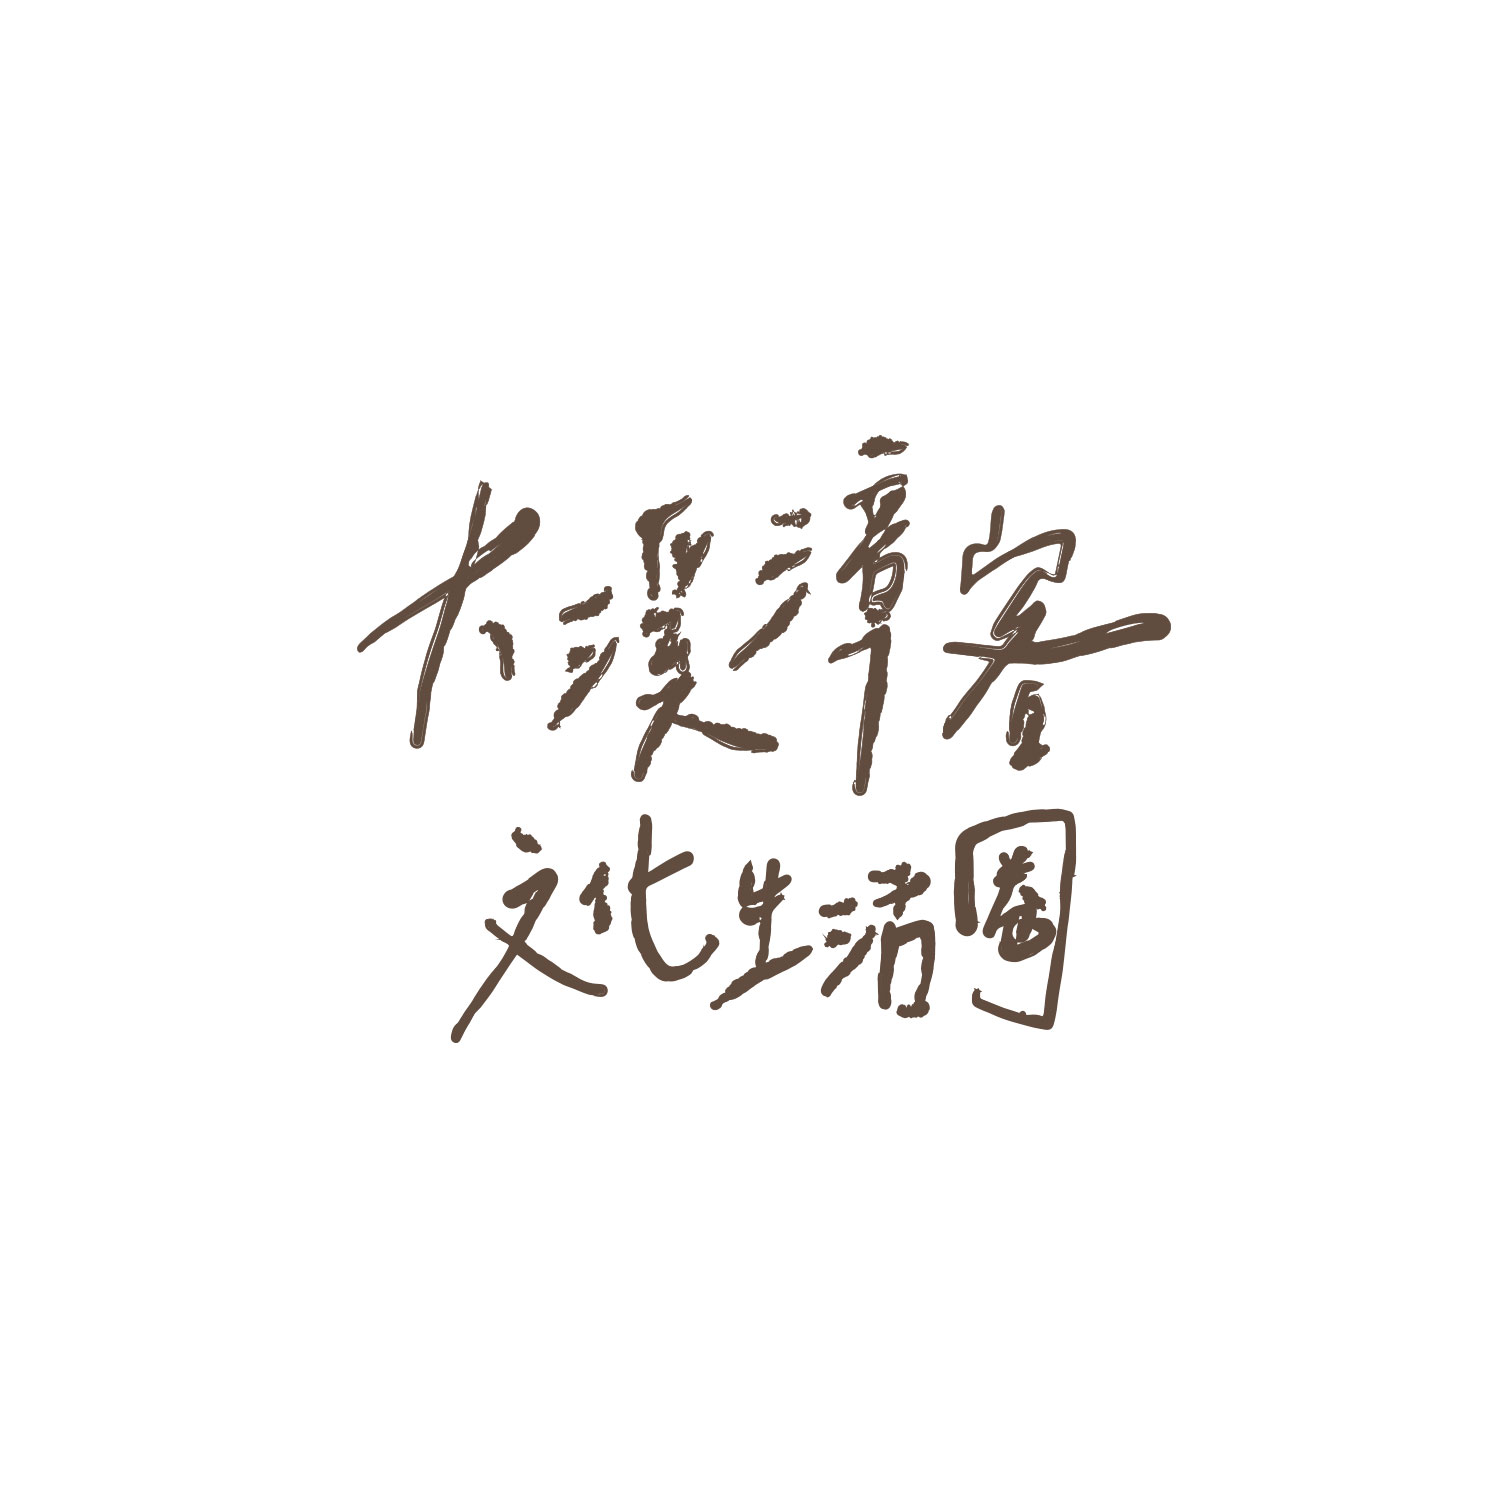 大溪漳客
文化生活圈